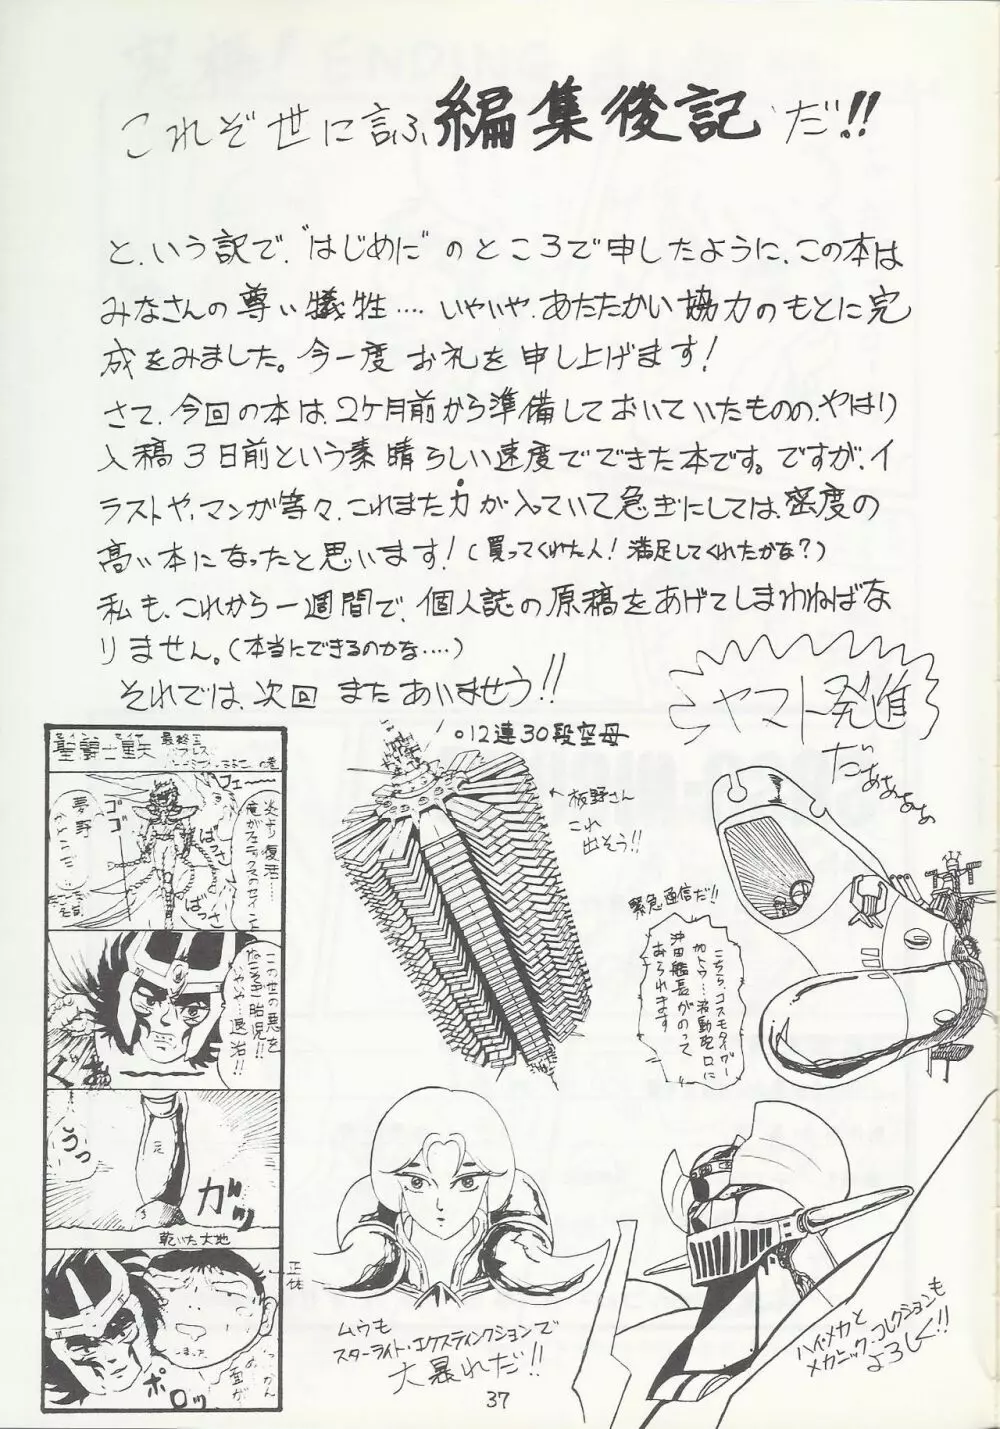 これぞ世に言ふ編集後記だ!!
と、いう訳で、“はじめに”のところで申したように、この本は
みなさんの尊い犠牲‥‥いやいや、あたたかい協力のもとに完
成をみました。今一度お礼を申し上げます!
さて、今回の本は、2ケ月前から準備しておいていたものの、やはり
入稿3日前という素晴らしい速度でできた本です。ですが、イ
ラストや、マンガ等々、これまた力が入っていて急ぎにしては、密度の
高い本になったと思います!(買ってくれた人!満足してくれたかな?)
私も、これから一週間で、個人誌の原稿をあげてしまわねばな
りません。(本当にできるのかな‥‥)
それでは、次回またあいませう!!
ヤマト発進
だぁぁぁぁ
。12連30段空母
←板野さん
これ
出そう!!
緊急通信だ!!
こちら、コスモタイガー
カトウ…波動砲口に
沖田艦長がのって
おられます
フェー
炎より復活…
俺がフェニックスのセイント
ゴゴゴ
ばっさ
ばっさ
この世の悪を
胎児!!
退治!!
うっ
元
ガッ
乾いた大地
正体
ポロッ
面が
ムウも
スターライト・エクスティンクションで
大暴れだ!!
ハイ・メカと
メカニック・コレクションも
よろしく!!
37